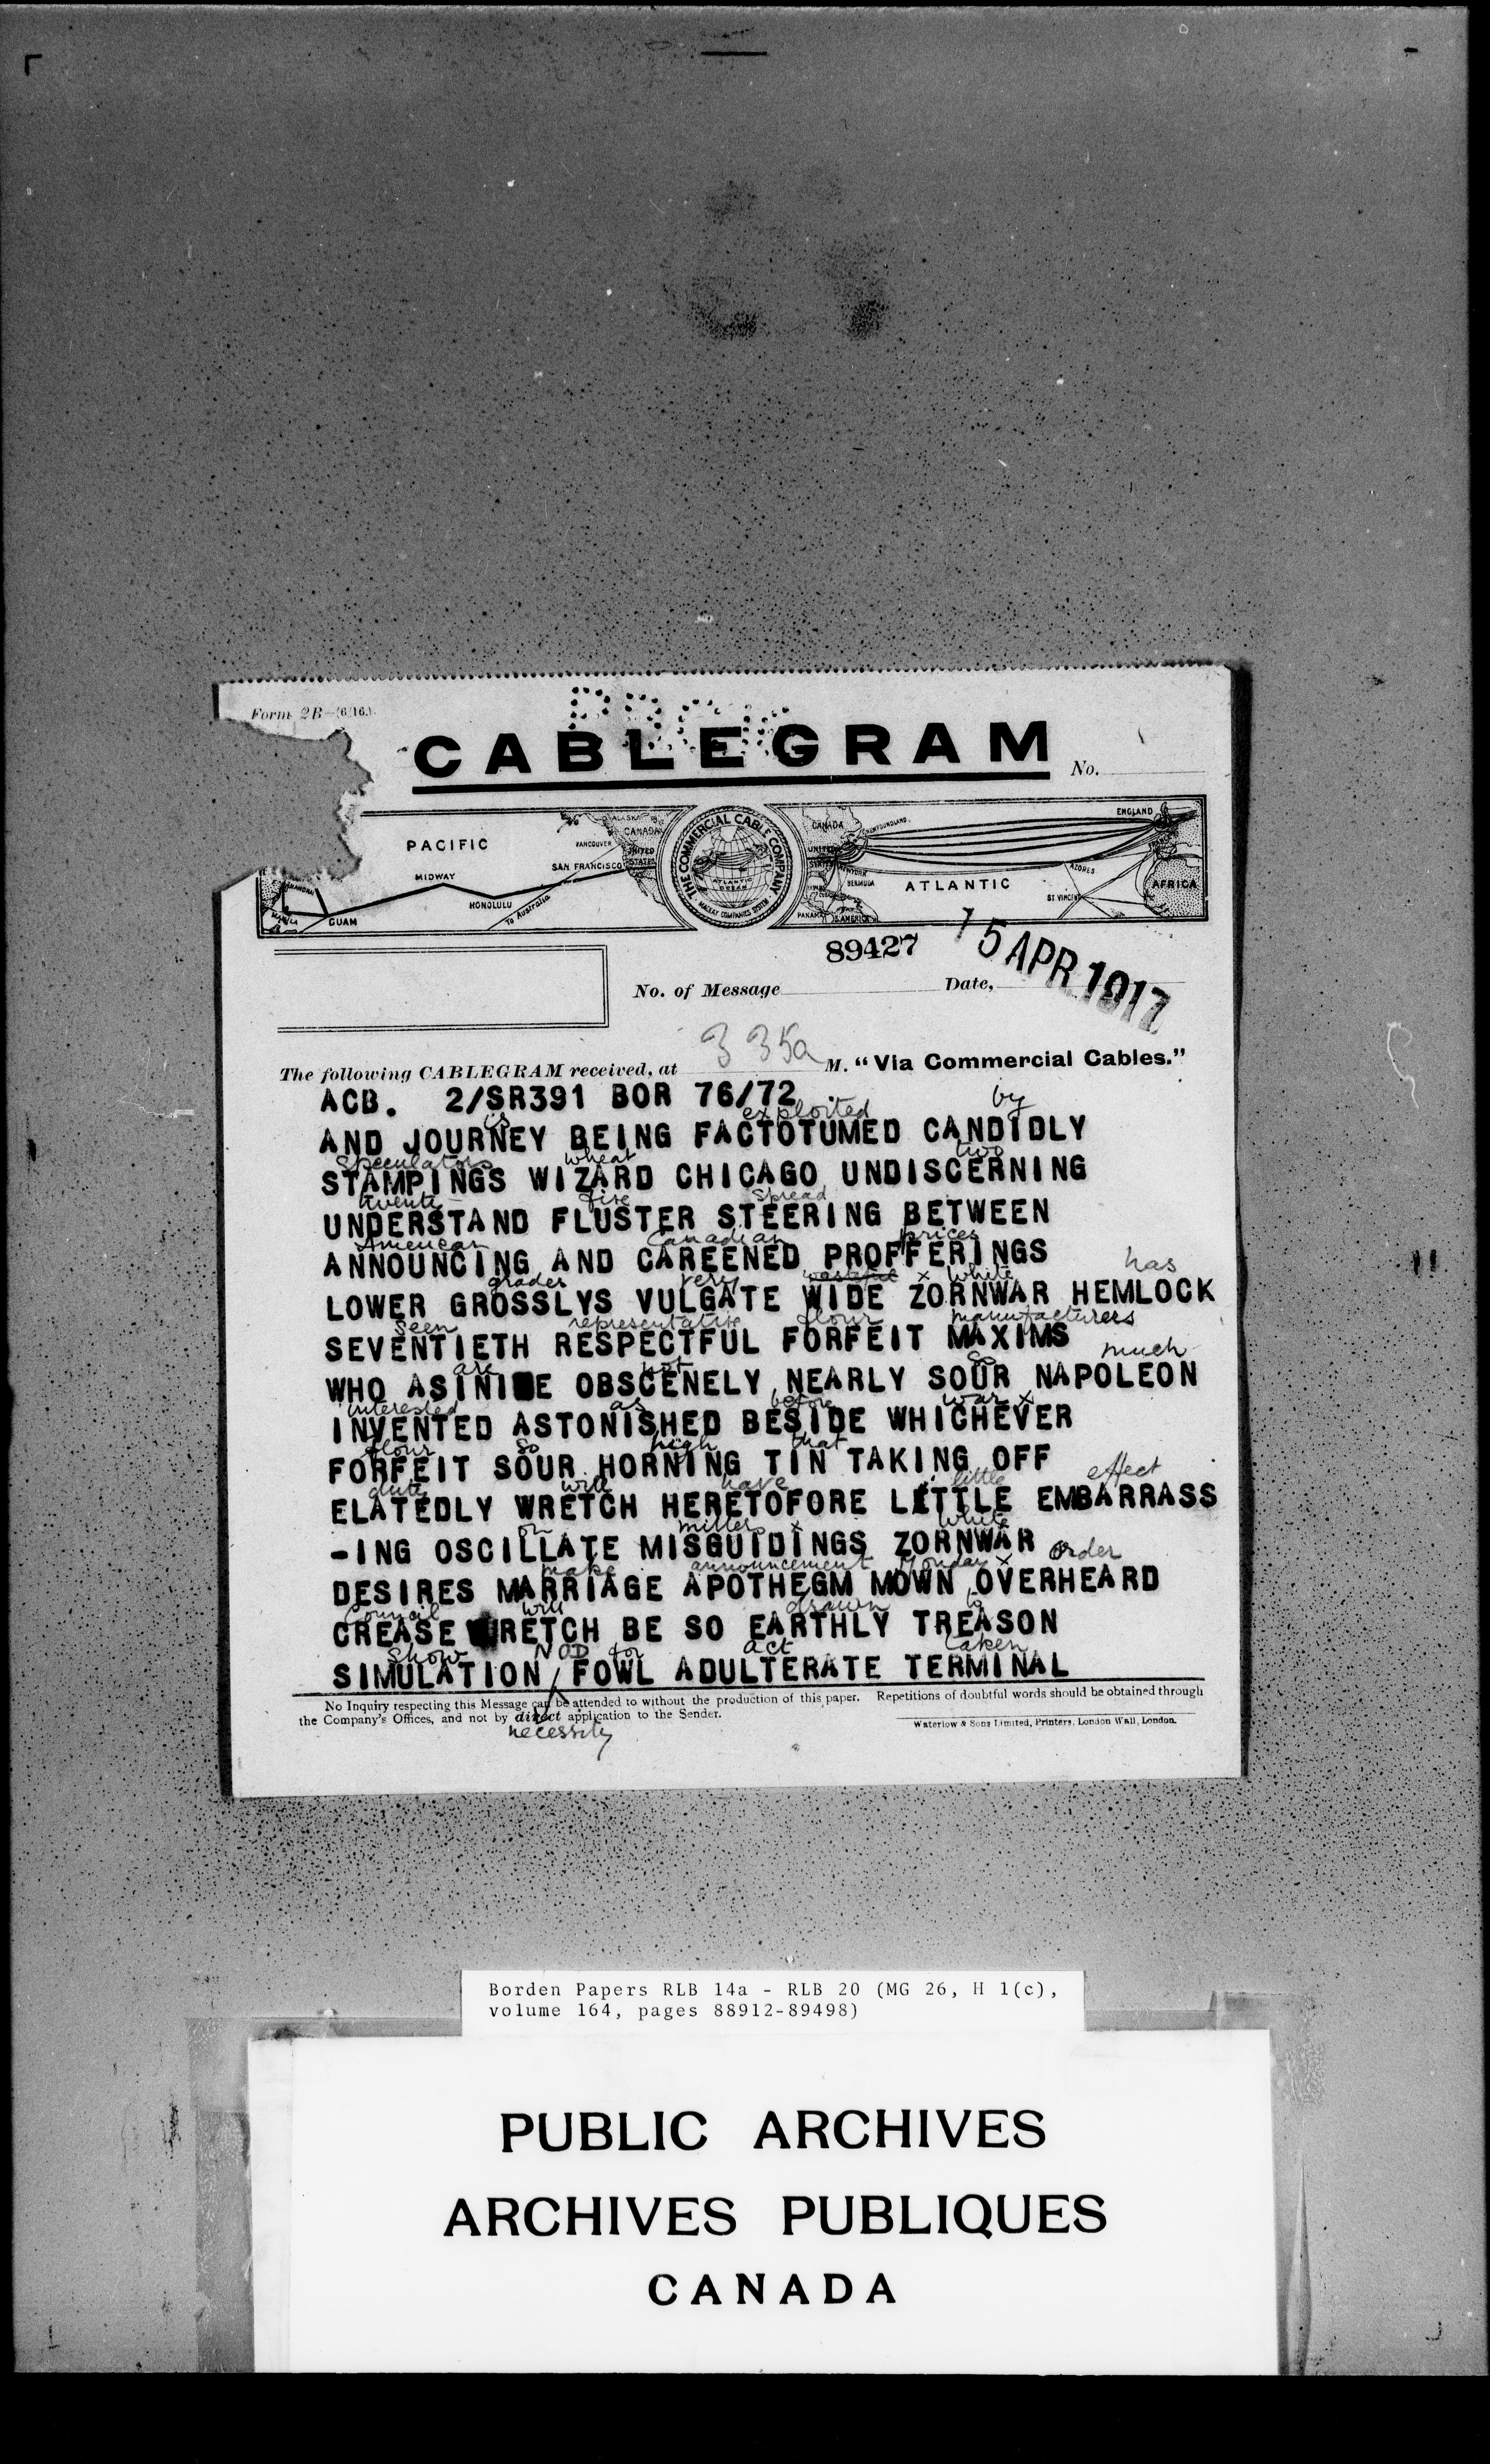 Form 2B—(6/16.)
CABLEGRAM
No.
PACIFIC
ALASKA
CANADA
VANCOUVER
UNITED
STATES
SAN FRANCISCO
MIDWAY
HONOLULU
To Australia
GUAM
MANILA
THE COMMERCIAL CABLE COMPANY
ATLANTIC
OCEAN
MACKAY COMPANIES SYSTEM
CANADA
NEWFOUNDLAND
UNITED
STATES
NEW YORK
BERMUDA
PANAMA
S. AMERICA
ATLANTIC
ENGLAND
AZORES
ST VINCENT
AFRICA
89427
15 APR 1917
No. of Message
Date,
The following CABLEGRAM received, at 3 35a M. "Via Commercial Cables."
ACB. 2/SR391 BOR 76/72
is exploited by
AND JOURNEY BEING FACTOTUMED CANDIDLY
Speculators wheat two
STAMPINGS WIZARD CHICAGO UNDISCERNING
twenty- five spread
UNDERSTAND FLUSTER STEERING BETWEEN
American Canadian prices
ANNOUNCING AND CAREENED PROFFERINGS
grades very wasteful x white has
LOWER GROSSLYS VULGATE WIDE ZORNWAR HEMLOCK
seen representative flour manufacturers
SEVENTIETH RESPECTFUL FORFEIT MAXIMS
are not so much
WHO ASININE OBSCENELY NEARLY SOUR NAPOLEON
interested as before war x
INVENTED ASTONISHED BESIDE WHICHEVER
flour so high that
FORFEIT SOUR HORNING TIN TAKING OFF
duty will have little effect
ELATEDLY WRETCH HERETOFORE LITTLE EMBARRASS
on millers x white
-ING OSCILLATE MISGUIDINGS ZORNWAR
make announcement Monday x order
DESIRES MARRIAGE APOTHEGM MOWN OVERHEARD
Council will drawn to
CREASE WRETCH BE SO EARTHLY TREASON
show NOD for act taken
SIMULATION / FOWL ADULTERATE TERMINAL
No Inquiry respecting this Message can be attended to without the production of this paper. Repetitions of doubtful words should be obtained through
the Company's Offices, and not by direct application to the Sender.
necessity
Waterlow & Sons Limited, Printers, London Wall, London.
Borden Papers RLB 14a - RLB 20 (MG 26, H 1(c),
volume 164, pages 88912-89498)
PUBLIC ARCHIVES
ARCHIVES PUBLIQUES
CANADA